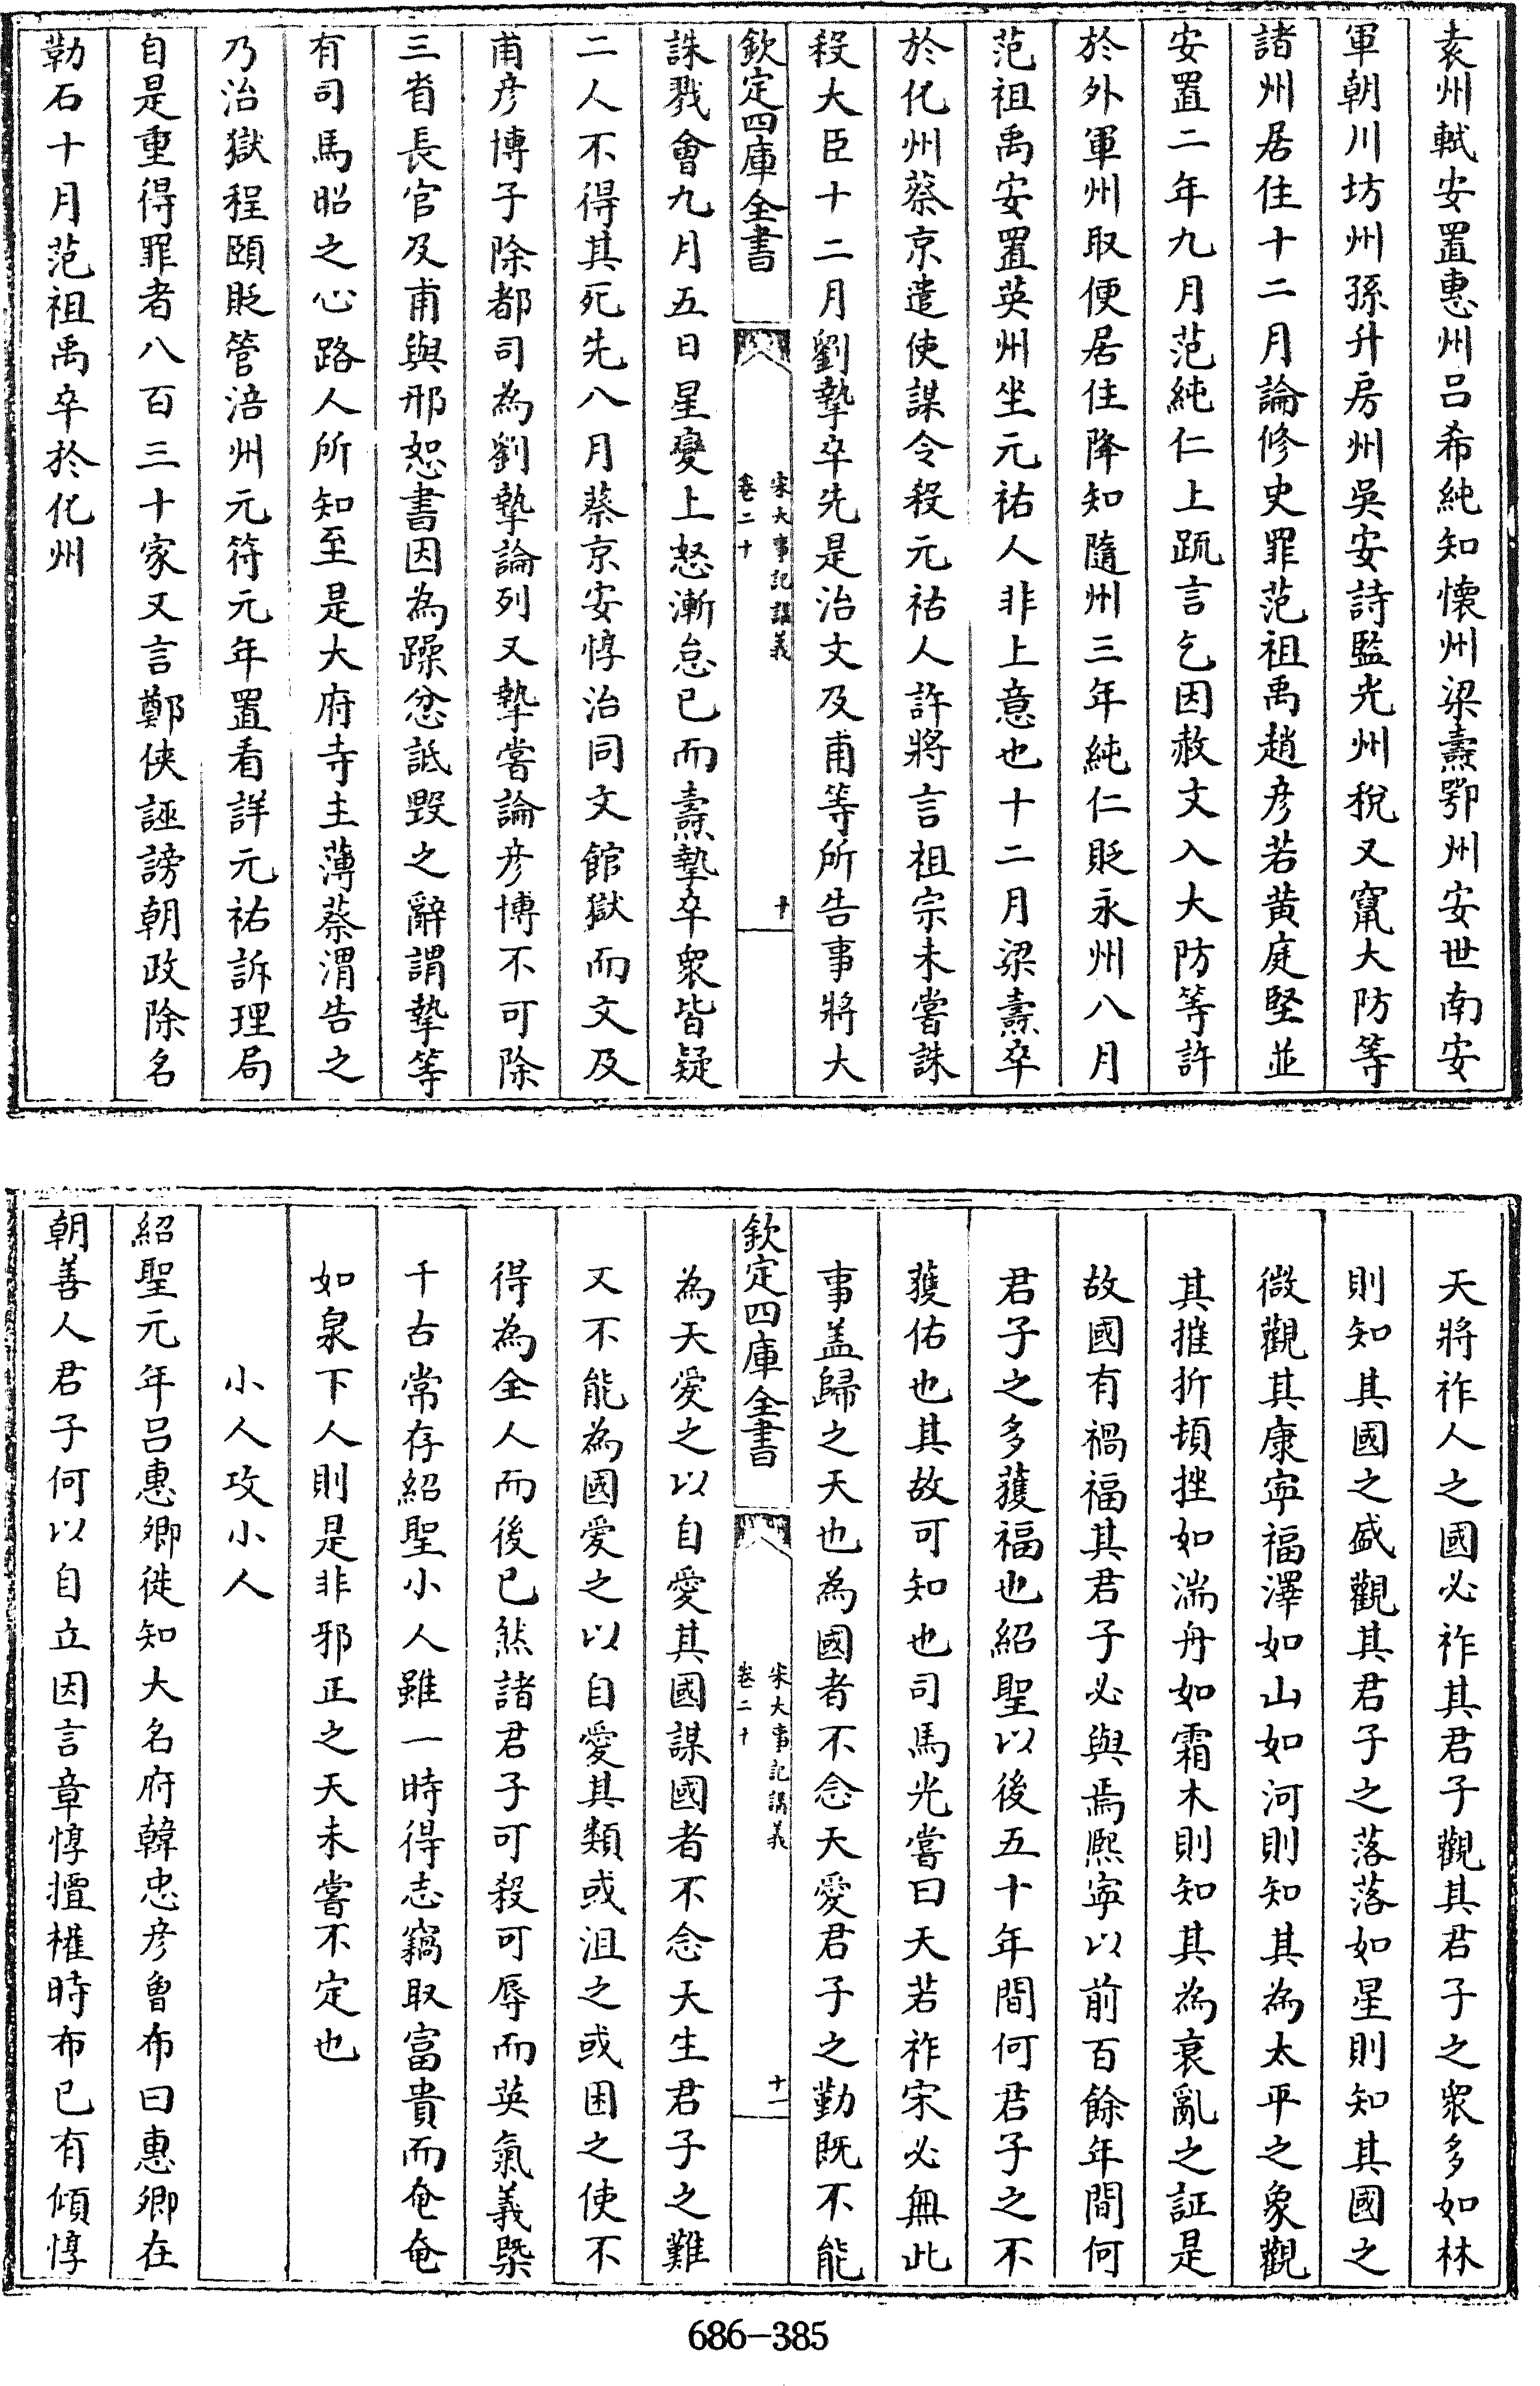 袁州軾安置惠州呂希純知懷州梁燾鄂州安世南安
軍朝川坊州孫升房州吳安詩監光州稅又竄大防等
諸州居住十二月論修史罪范祖禹趙彥若黃庭堅並
安置二年九月范純仁上疏言乞因赦文入大防等許
於外軍州取便居住降知隨州三年純仁貶永州八月
范祖禹安置英州坐元祐人非上意也十二月梁燾卒
於化州蔡京遣使謀令殺元祐人許將言祖宗未嘗誅
殺大臣十二月劉摯卒先是治文及甫等所告事將大
欽定四庫全書
宋大事記講義
卷二十
十
誅戮會九月五日星變上怒漸怠已而燾摯卒眾皆疑
二人不得其死先八月蔡京安惇治同文館獄而文及
甫彥博子除都司為劉摯論列又摯嘗論彥博不可除
三省長官及甫與邢恕書因為躁忿詆毀之辭謂摯等
有司馬昭之心路人所知至是大府寺主薄蔡渭告之
乃治獄程頤貶管涪州元符元年置看詳元祐訴理局
自是重得罪者八百三十家又言鄭俠誣謗朝政除名
勒石十月范祖禹卒於化州
天將祚人之國必祚其君子觀其君子之眾多如林
則知其國之盛觀其君子之落落如星則知其國之
微觀其康寧福澤如山如河則知其為太平之象觀
其摧折頓挫如湍舟如霜木則知其為衰亂之証是
故國有禍福其君子必與焉熙寧以前百餘年間何
君子之多獲福也紹聖以後五十年間何君子之不
獲佑也其故可知也司馬光嘗曰天若祚宋必無此
事盖歸之天也為國者不念天愛君子之勤既不能
欽定四庫全書
宋大事記講義
卷二十
十一
為天愛之以自愛其國謀國者不念天生君子之難
又不能為國愛之以自愛其類或沮之或困之使不
得為全人而後已然諸君子可殺可辱而英氣義槩
千古常存紹聖小人雖一時得志竊取富貴而奄奄
如泉下人則是非邪正之天未嘗不定也
小人攻小人
紹聖元年呂惠卿徙知大名府韓忠彥曾布曰惠卿在
朝善人君子何以自立因言章惇擅權時布已有傾惇
686-385